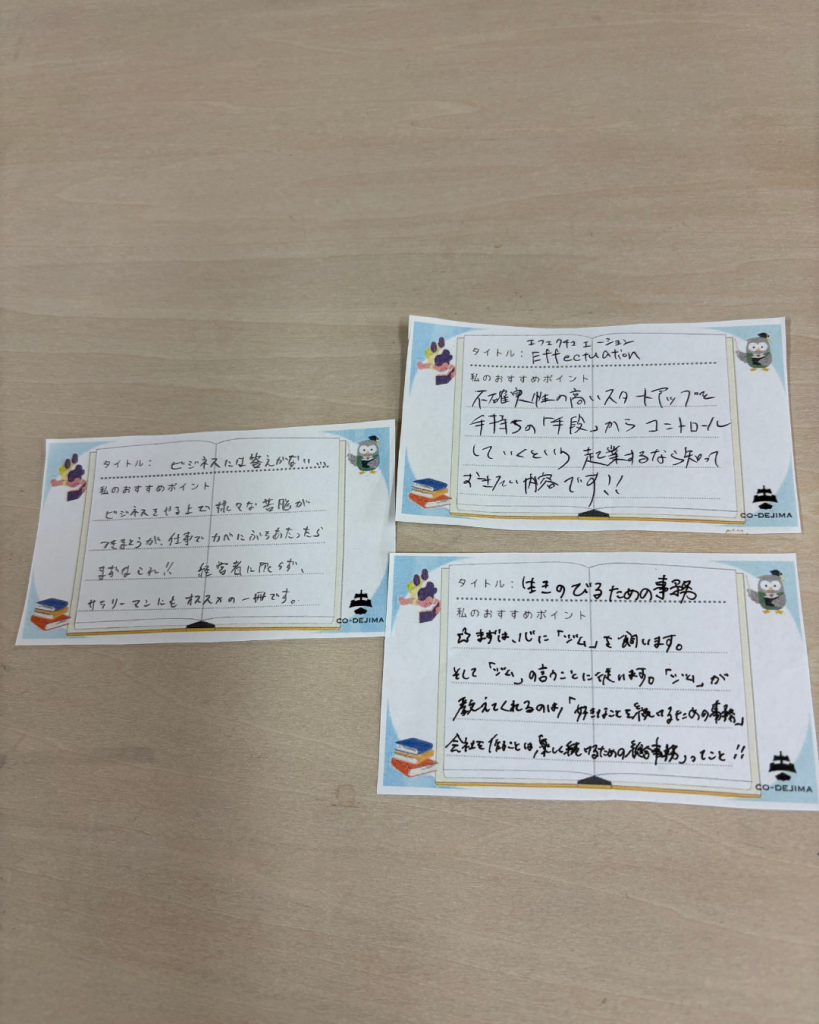 タイトル： ビジネスには答えがない…
私のおすすめポイント
ビジネスをやる上で様々な苦悩が
つきまとうが、仕事でカベにぶちあたったら
まずはこれ!! 経営者に限らず、
サラリーマンにもオススメの一冊です。
CO-DEJIMA
エフェクチュエーション
タイトル： Effectuation
私のおすすめポイント
不確実性の高いスタートアップを
手持ちの「手段」からコントロール
していくという起業するなら知って
おきたい内容です!!
CO-DEJIMA
タイトル： 生きのびるための事務
私のおすすめポイント
☆まずは、心に「ジム」を飼います。
そして「ジム」の言うことに従います。「ジム」が
教えてくれるのは「好きなことを続けるための事務」
会社を作ることは、楽しく続けるための事務」ってこと!!
CO-DEJIMA